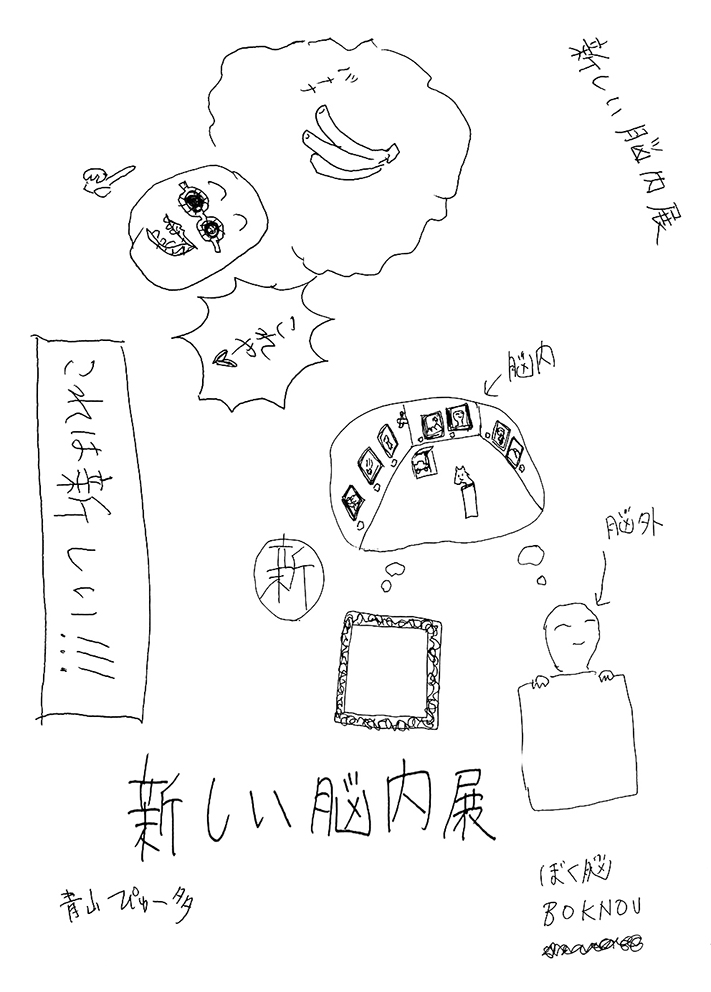 新しい脳内展
バナナ
これや
脳内
これは新しい!!!
脳外
新
新しい脳内展
ぼく脳
BOKNOU
青山ぴゅー多